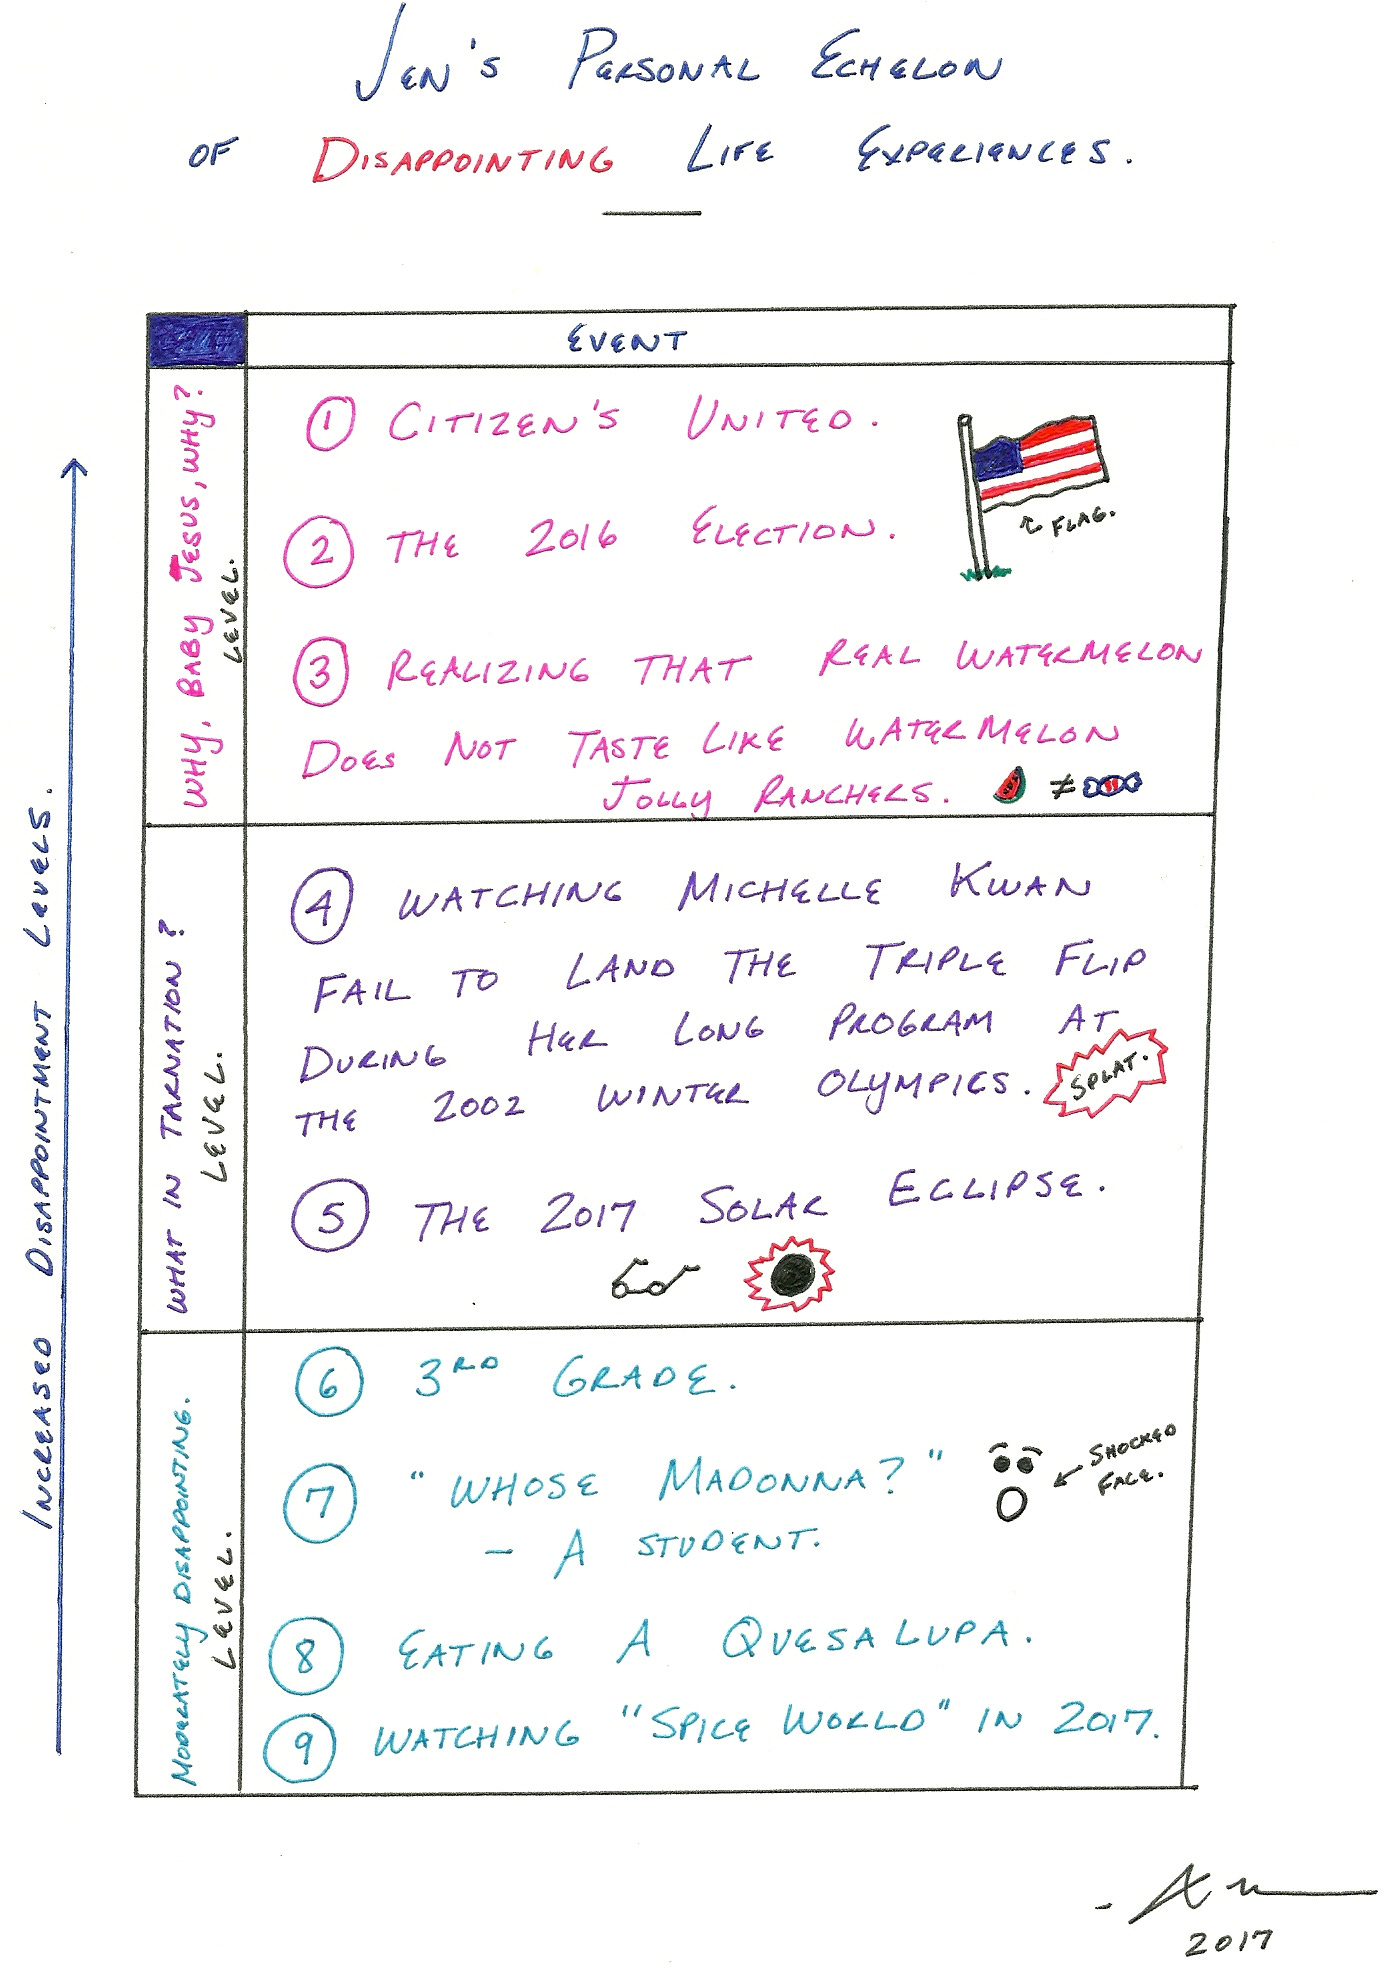 JEN'S PERSONAL ECHELON
OF DISAPPOINTING LIFE EXPERIENCES.
EVENT
INCREASED DISAPPOINTMENT LEVELS.
WHY, BABY JESUS, WHY?
LEVEL.
1 CITIZEN'S UNITED.
2 THE 2016 ELECTION.
FLAG.
3 REALIZING THAT REAL WATERMELON
DOES NOT TASTE LIKE WATERMELON
JOLLY RANCHERS. ≠
WHAT IN TARNATION?
LEVEL.
4 WATCHING MICHELLE KWAN
FAIL TO LAND THE TRIPLE FLIP
DURING HER LONG PROGRAM AT
THE 2002 WINTER OLYMPICS. SPLAT.
5 THE 2017 SOLAR ECLIPSE.
MODERATELY DISAPPOINTING.
LEVEL.
6 3RD GRADE.
7 "WHOSE MADONNA?"
- A STUDENT.
SHOCKED
FACE.
8 EATING A QUESALUPA.
9 WATCHING "SPICE WORLD" IN 2017.
2017